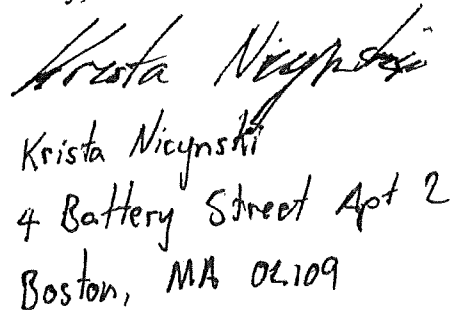 Krista Nicynski
Krista Nicynski
4 Battery Street Apt 2
Boston, MA 02109